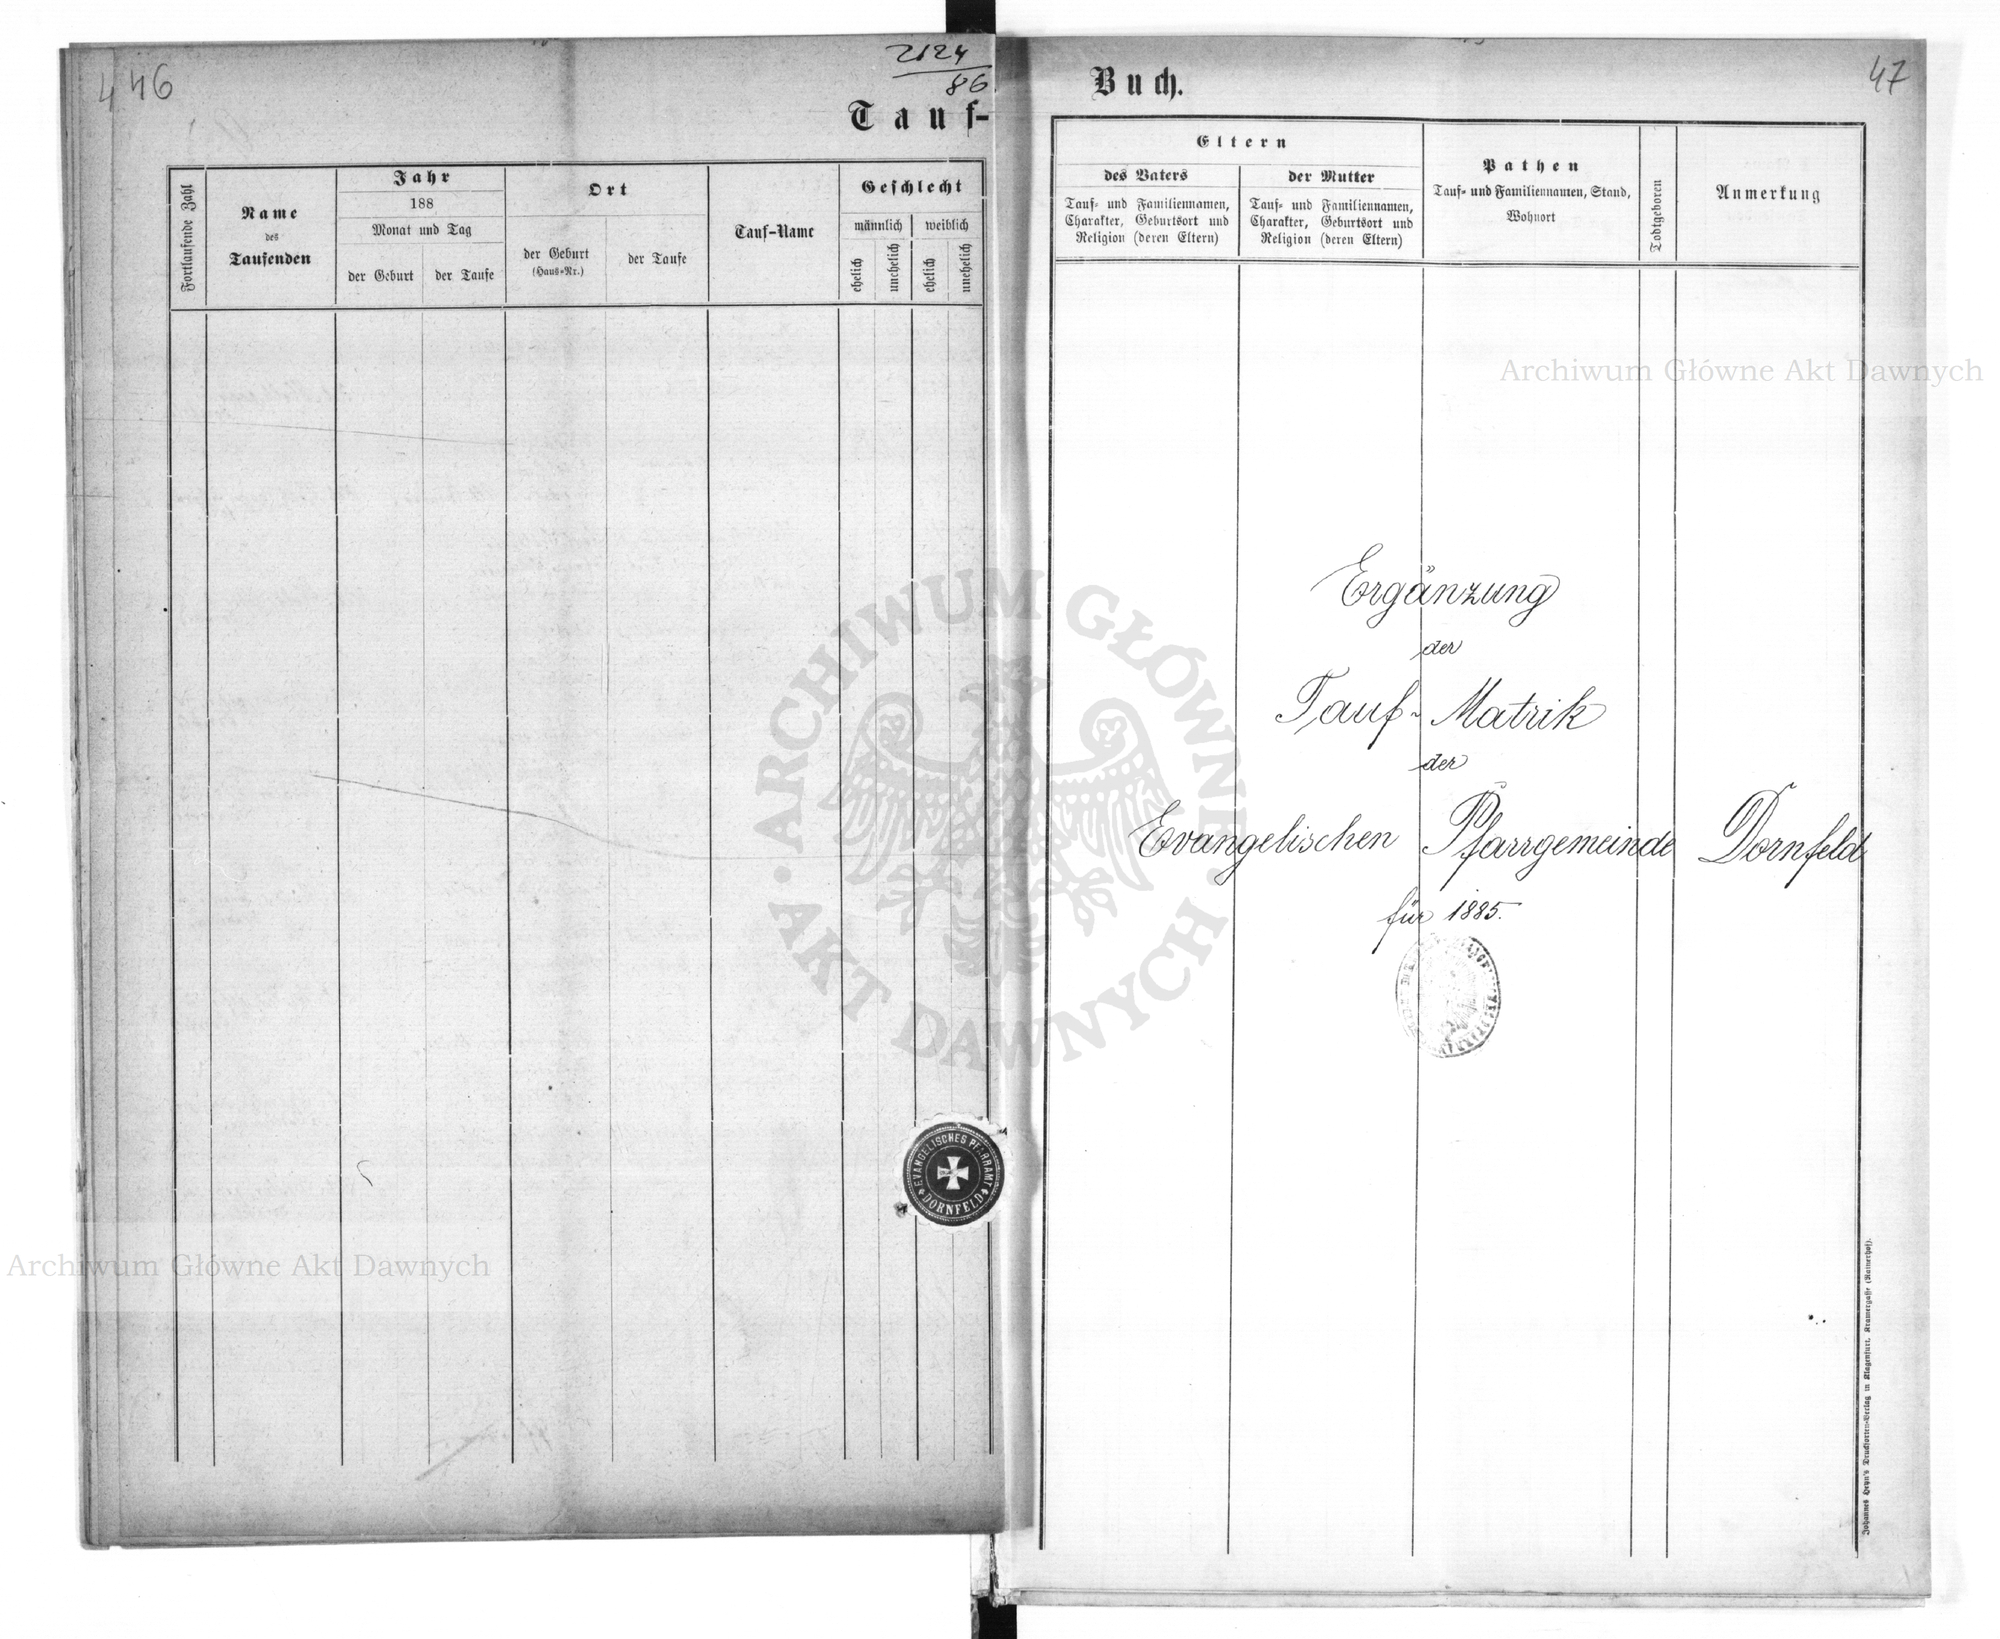 446
2124
86
Tauf-
Fortlaufende Zahl
Name
des
Taufenden
Jahr
188
Monat und Tag
der Geburt
der Taufe
Ort
der Geburt
(Haus-Nr.)
der Taufe
Tauf-Name
Geschlecht
männlich
weiblich
ehelich
unehelich
ehelich
unehelich
EVANGELISCHES PFARRAMT
DORNFELD
Buch.
47
Eltern
des Vaters
Tauf- und Familiennamen,
Charakter, Geburtsort und
Religion (deren Eltern)
der Mutter
Tauf- und Familiennamen,
Charakter, Geburtsort und
Religion (deren Eltern)
Pathen
Tauf- und Familiennamen, Stand,
Wohnort
Todtgeboren
Anmerkung
Ergänzung
der
Tauf-Matrik
der
Evangelischen Pfarrgemeinde Dornfeld
für 1885.
Johannes Heyn's Drucksorten-Verlag in Klagenfurt, Kramergasse (Rainerhof).
Archiwum Główne Akt Dawnych
ARCHIWUM GŁÓWNE
AKT DAWNYCH
Archiwum Główne Akt Dawnych